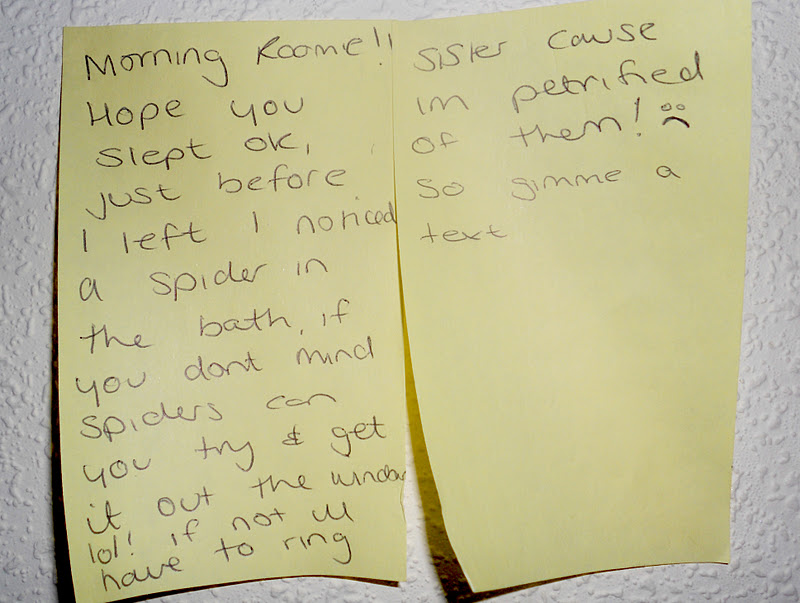 Morning Roomie!!
Hope you
slept ok,
just before
I left I noticed
a spider in
the bath, if
you dont mind
spiders can
you try & get
it out the window
lol! if not ill
have to ring
sister cause
im petrified
of them! :(
so gimme a
text